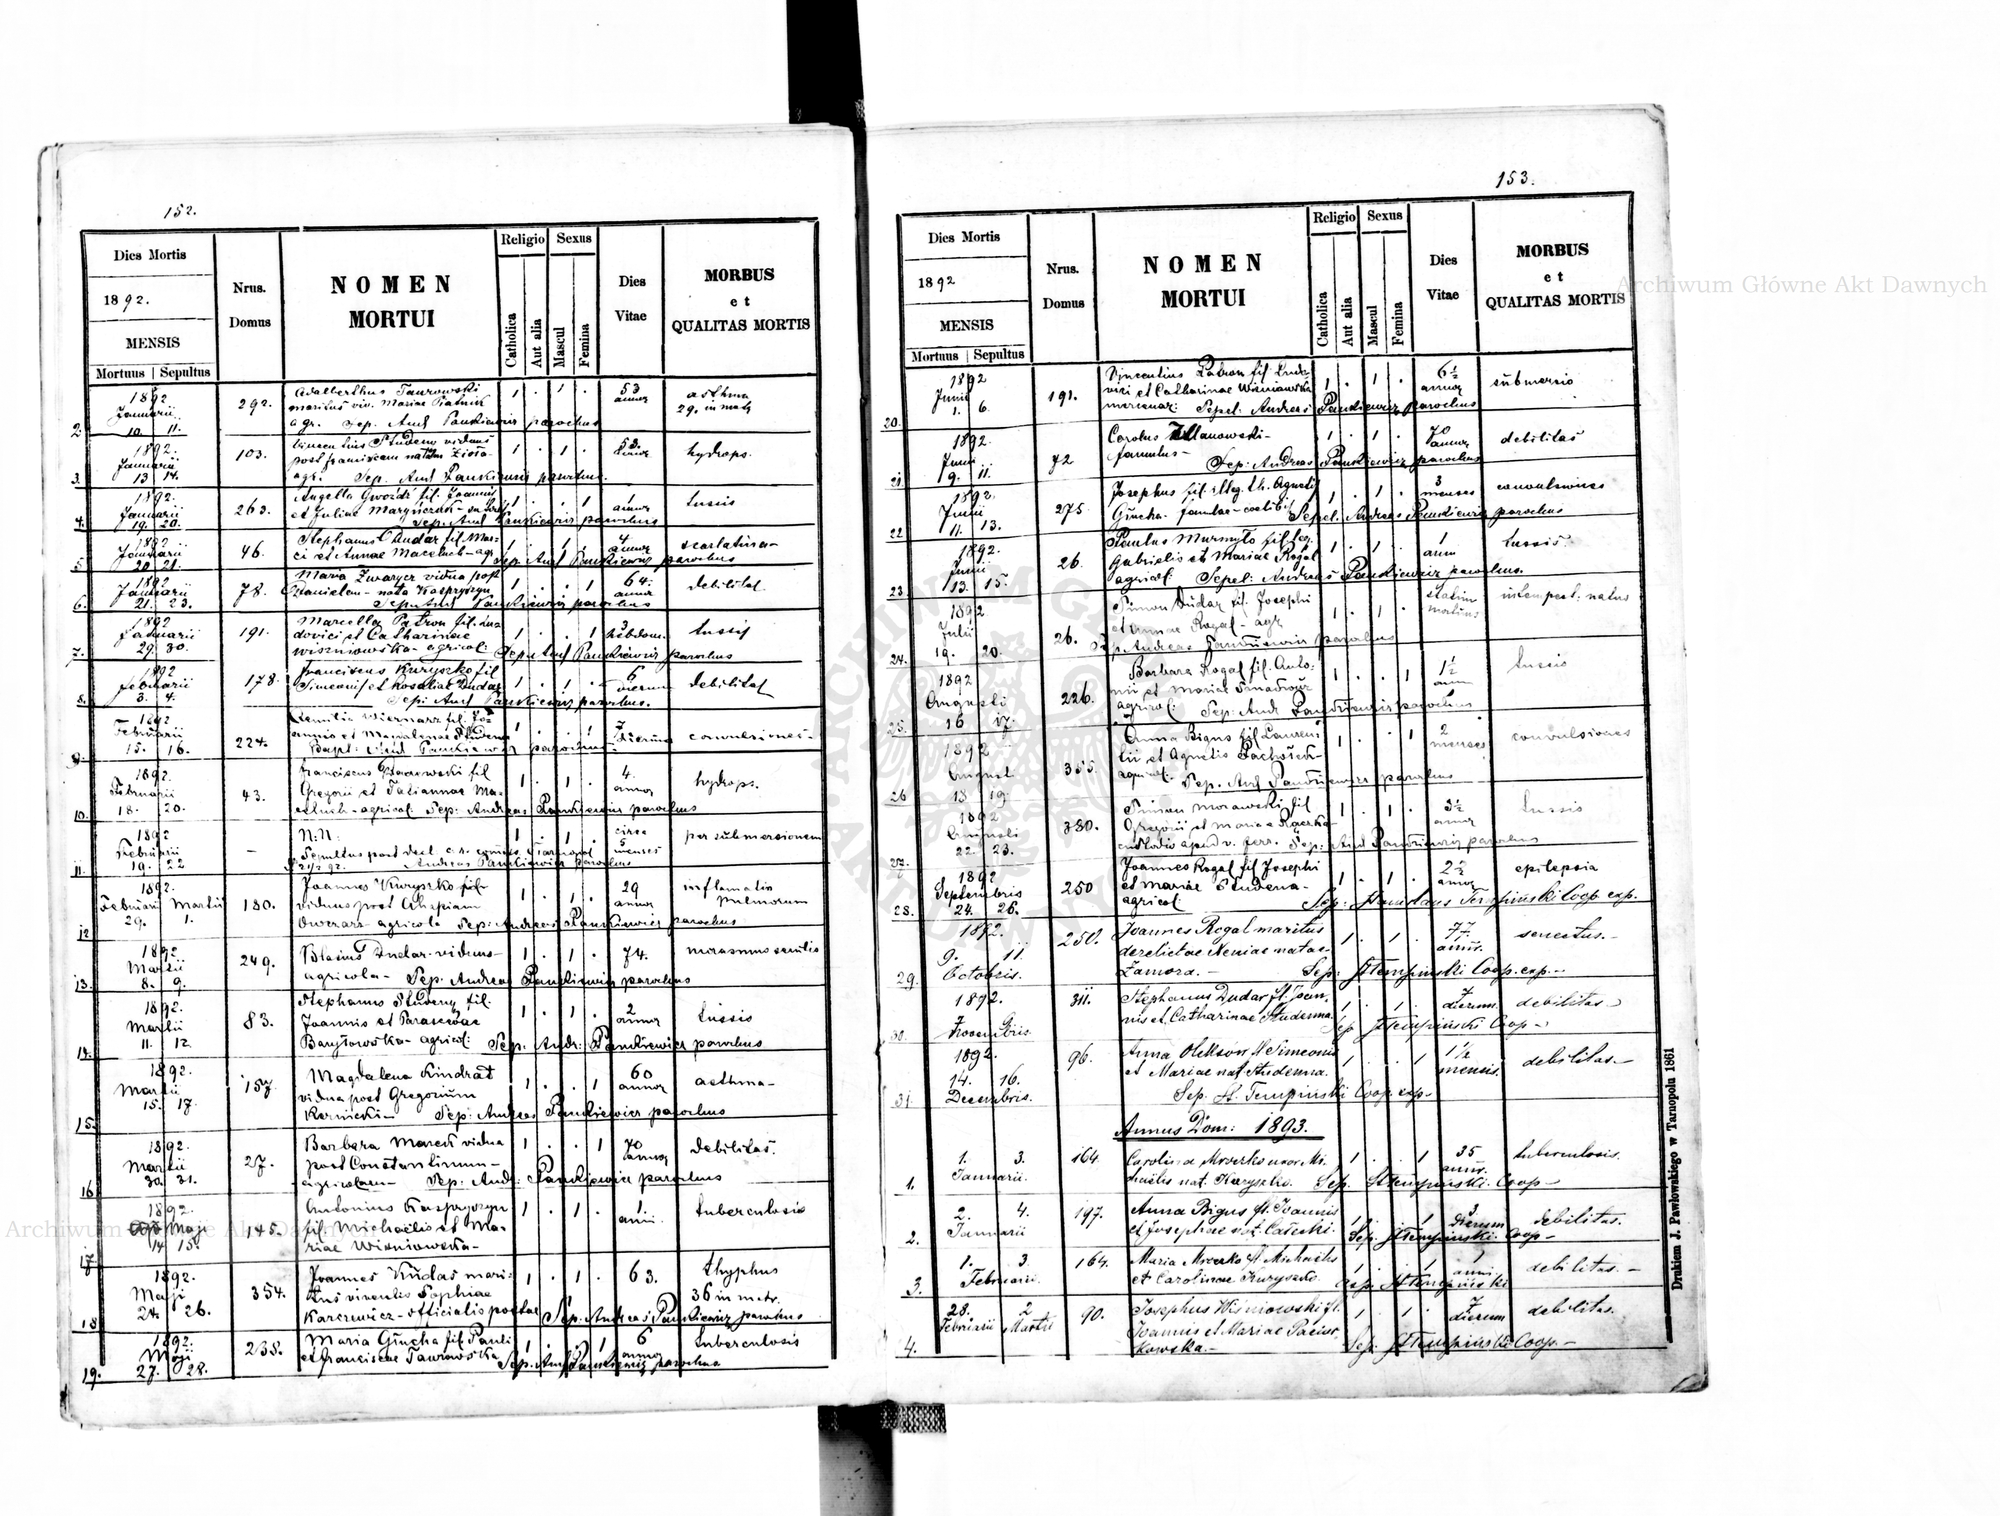 152.
Dies Mortis
1892.
MENSIS
Mortuus | Sepultus
Nrus.
Domus
NOMEN
MORTUI
Religio
Catholica
Aut alia
Sexus
Mascul
Femina
Dies
Vitae
MORBUS
et
QUALITAS MORTIS
2. 1892 Januarii 10. 11. 292. Adalberthus Taurowski 1 . 1 . 53 annor asthma
maritus viv. Maria Piatnik 29. in matr
agr. Sep. And Pankiewicz parochus
3. 1892. Januarii 13 14. 103. Vincentius Studeny viduus 1 . 1 . hydrops.
post Franciscam natam
agr. Sep. And Pankiewicz parochus.
4. 1892. Januarii 19. 20. 263. Angella Gwóźdź fil. Joannis 1 . . 1 1 annor tussis
et Juliae
Sep. And Pankiewicz parochus
5. 1892 Januarii 20 21. 46. Stephanus Dudar fil. Mar- 1 . 1 . 4 annor scarlatina-
ci et Annae Maceluch - agr Sep And Pankiewicz parochus
6. 1892 Januarii 21. 23. 78. Maria Zwarycz vidua post 1 . . 1 64. annor debilitas
Stanislaum - nata Kaspryszyn
Sep. And Pankiewicz parochus
7. 1892 Januarii 29. 30. 191. Marcella Patron fil. Lu- 1 . . 1 3 hebdom. tussis
dovici et Catharinae
Wiszniowska - agricol: Sep. And Pankiewicz parochus
8. 1892 Februarii 3. 4. 178. Franciscus Kuryszko fil 1 . 1 . 6 dierum debilitas
Simeonis et Rosaliae Dudar
Sep: And Pankiewicz parochus.
9. 1892 Februarii 15. 16. 224. 1 . . 1 7 dierum convulsiones-
annis et Magdalenae Studena
Bapt: And Pankiewicz parochus
10. 1892 Februarii 18. 20. 43. Franciscus fil 1 . 1 . 4. annor hydrops.
Gregorii et Tatiannae Ma-
celuch - agricol. Sep: Andreas Pankiewicz parochus
11. 1892 Februarii 19. 22 — N:N: 1 . 1 . circa 5 menses per submersionem
Sepultus post decl. c. r. Tarnopol
Andreas Pankiewicz parochus
12 1892. Februarii Martii 29. 1. 180. Joannes Kuryszko fil- 1 . 1 . 29 annor inflamatio pulmonum
viduus post Ahapiam
Owczar - agricola Sep: Andreas Pankiewicz parochus
13. 1892 Martii 8. 9. 249. Blasius Dudar viduus- 1 . 1 . 74. marasmus senilis
agricola - Sep. Andreas Pankiewicz parochus
14. 1892. Martii 11. 12. 83. Stephanus Studeny fil. 1 . 1 . 2 annor tussis
Joannis et Parascevae
Baryłowska - agricol: Sep: Andr: Pankiewicz parochus
15. 1892. Martii 15. 17. 157 Magdalena Kindrat 1 . . 1 60 annor asthma-
vidua post Gregorium
Kernicki - Sep: Andreas Pankiewicz parochus
16. 1892 Martii 30. 31. 27. Barbara Marcuk vidua 1 . . 1 70 annor debilitas.
post Constantinum-
agricolam - Sep: Andr: Pankiewicz parochus
17 1892. Maji 14 15. 145. Antonius Kaspryszyn 1 . 1 . 1 anni tuberculosis
fil. Michaëlis et Ma-
riae Wiśniowska-
18 1892. Maji 24. 26. 354. Joannes Kudas mari- 1 . 1 . 63. thyphus
tus viventis Sophiae 36 in matr.
Karczewicz - officialis postae Sep. Andreas Pankiewicz parochus
19. 1892. Maji 27. 28. 238. Maria Głucha fil. Pauli 1 . . 1 6 annor tuberculosis
et Franciscae Taurowska Sep. And Pankiewicz parochus
153.
Dies Mortis
1892
MENSIS
Mortuus | Sepultus
Nrus.
Domus
NOMEN
MORTUI
Religio
Catholica
Aut alia
Sexus
Mascul
Femina
Dies
Vitae
MORBUS
et
QUALITAS MORTIS
20. 1892 Junii 1. 6. 191. Vincentius Patron fil. Ludo- 1 . 1 . 6½ annor submersio
vici et Catharinae Wiśniowska
mercenar: Sepel: Andreas Pankiewicz parochus
21. 1892. Junii 9. 11. 72 Carolus Ullanowski- 1 . 1 . 70 annor debilitas
famulus- Sep: Andreas Pankiewicz parochus
22 1892. Junii 11. 13. 275. Josephus fil. illeg. th. Agnetis 1 . 1 . 3 menses convulsiones
Głucha. famulae - coelibis Sepel. Andreas Pankiewicz parochus
23. 1892. Junii 13. 15. 26. Paulus Murmyło fil leg. 1 . 1 . 1 anni tussis
Gabrielis et Mariae Rogal
agricol. Sepel: Andreas Pankiewicz parochus.
24. 1892 Julii 19. 20. 26. Simon Dudar fil. Josephi 1 . 1 . statim mortuus intempest: natus
et Annae Rogal - agr
Sep Andreas Pankiewicz parochus
25. 1892 Augusti 16 17. 226. Barbara Rogal fil. Anto- 1 . . 1 1½ anni tussis
nii et Mariae
agricol: Sep: And Pankiewicz parochus
26 1892 August 18 19. 355. Anna Bigus fil Lauren- 1 . . 1 2 menses convulsiones
tii et Agnetis
agricol: Sep. And Pankiewicz parochus
27. 1892 Augusti 22. 23. 380. Simon Morawski fil 1 . 1 . 3½ annor tussis
Gregorii et Mariae Rączka-
custodis apud v. ferr. Sep: And Pankiewicz parochus
28. 1892 Septembris 24. 26. 250 Joannes Rogal fil Josephi 1 . 1 . 2½ annor epilepsia
et Mariae Studena-
agricol. Sep: Stanislaus Tempiński Coop. exp.
29. 1892. 9. 11. Octobris. 250. Joannes Rogal maritus 1 . 1 . 77 annor. senectus.-
derelictae Xeniae natae
Zamora.- Sep: St Tempiński Coop. exp.-
30. 1892. 7. 9. Novembris. 311. Stephanus Dudar fil. Joan. 1 . 1 . 7 dierum debilitas.-
nis et Catharinae Studenna. Sep St Tempiński Coop-
31. 1892. 14. 16. Decembris. 96. Anna Oleksów fil Simeonis 1 . . 1 1½ mensis. debilitas.-
et Mariae nat. Studenna.
Sep. St. Tempiński Coop. exp-
Annus Dom: 1893.
1. 1. 3. Januarii. 164. Carolina Mroczko uxor. Mi- 1 . . 1 35 annor. tuberculosis.
chaëlis nat. Kuryszko. Sep. St Tempiński. Coop-
2. 2. 4. Januarii 197. Anna Bigus fil. Joannis 1 . . 1 3 dierum debilitas.
et Josephae nat. Całecki. Sep. St Tempiński. Coop-
3. 1. 3. Februarii. 164. Maria Mroczko fil Michaëlis 1 . . 1 1 anni. debilitas.-
et Carolinae Kuryszko. Sep. St Tempiński
4. 28. 2 Februarii Martii 90. Josephus Wiśniowski fil. 1 . 1 . 7 dierum debilitas.
Joannis et Mariae Pacior-
kowska.- Sep. St Tempiński Coop.-
Drukiem J. Pawłowskiego w Tarnopolu 1861
Archiwum Główne Akt Dawnych
Archiwum Główne Akt Dawnych